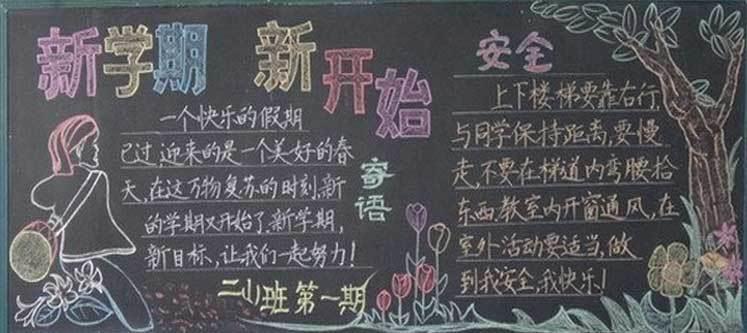 新学期 新开始
一个快乐的假期
已过,迎来的是一个美好的春
天,在这万物复苏的时刻,新
的学期又开始了,新学期,
新目标,让我们一起努力!
寄语
二山班第一期
安全
上下楼梯要靠右行,
与同学保持距离,要慢
走,不要在梯道内弯腰拾
东西,教室内开窗通风,在
室外活动要适当,做
到我安全,我快乐!